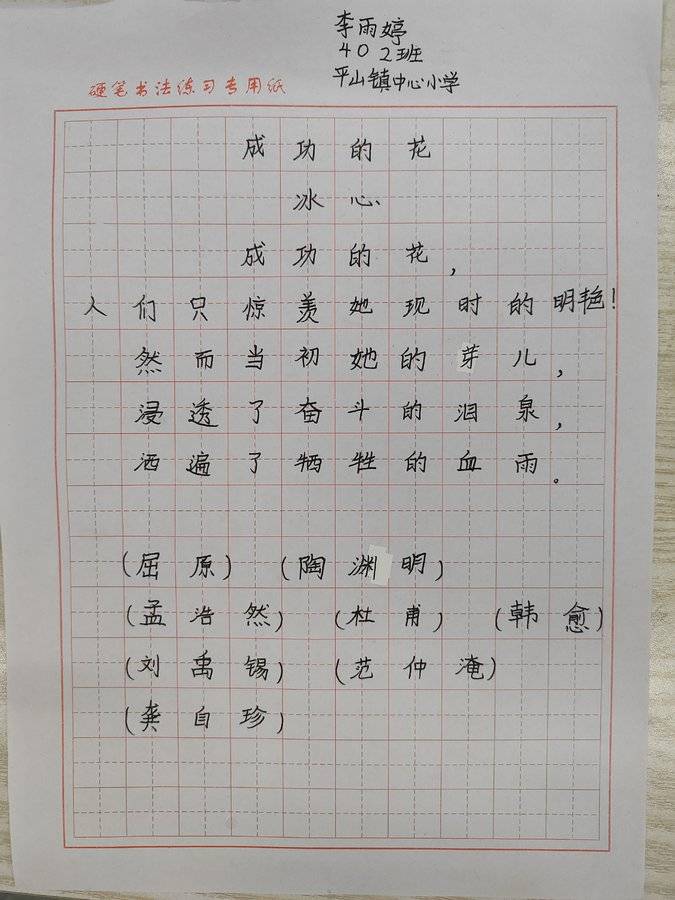 李雨婷
402班
平山镇中心小学
硬笔书法练习专用纸
成功的花
冰心
成功的花，
人们只惊羡她现时的明艳！
然而当初她的芽儿，
浸透了奋斗的泪泉，
洒遍了牺牲的血雨。
（屈原）（陶渊明）
（孟浩然）（杜甫）（韩愈）
（刘禹锡）（范仲淹）
（龚自珍）